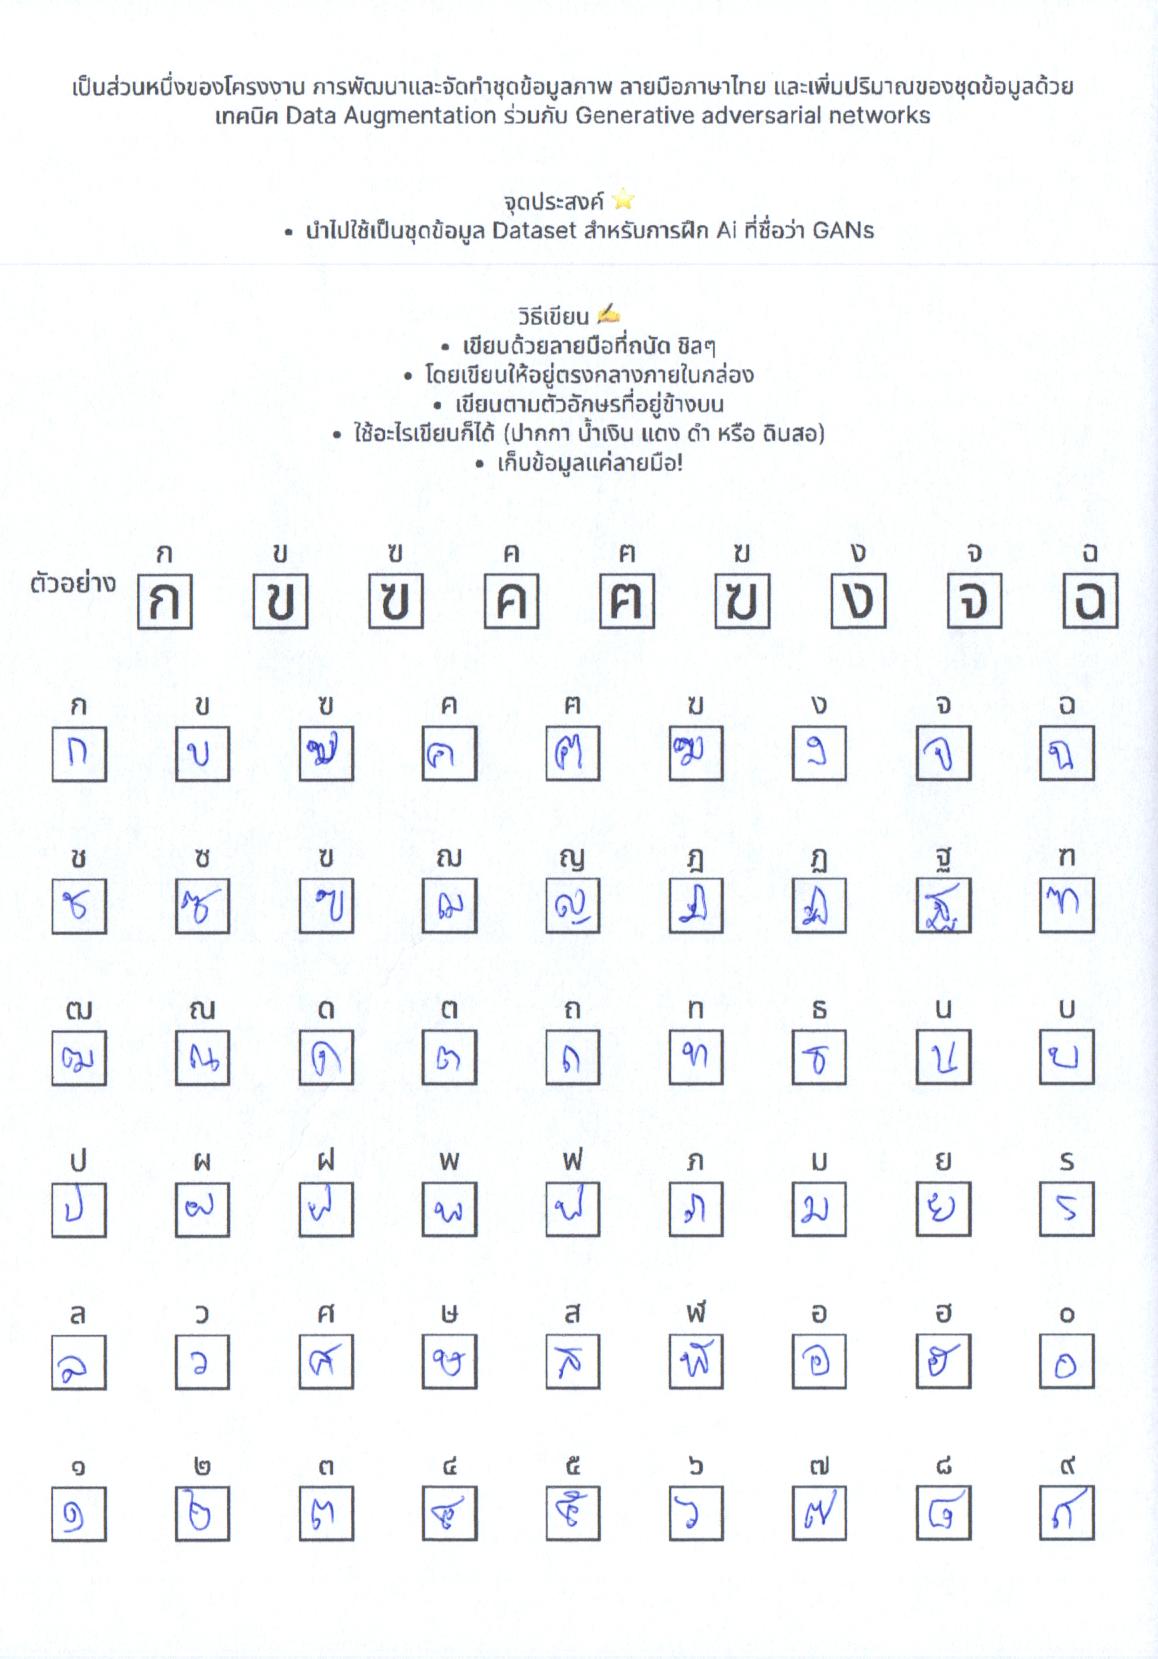 เป็นส่วนหนึ่งของโครงงาน การพัฒนาและจัดทำชุดข้อมูลภาพ ลายมือภาษาไทย และเพิ่มปริมาณของชุดข้อมูลด้วย
เทคนิค Data Augmentation ร่วมกับ Generative adversarial networks
จุดประสงค์ ⭐
• นำไปใช้เป็นชุดข้อมูล Dataset สำหรับการฝึก Ai ที่ชื่อว่า GANs
วิธีเขียน ✍️
• เขียนด้วยลายมือที่ถนัด ชิลๆ
• โดยเขียนให้อยู่ตรงกลางภายในกล่อง
• เขียนตามตัวอักษรที่อยู่ข้างบน
• ใช้อะไรเขียนก็ได้ (ปากกา น้ำเงิน แดง ดำ หรือ ดินสอ)
• เก็บข้อมูลแค่ลายมือ!
ก ข ฃ ค ฅ ฆ ง จ ฉ
ตัวอย่าง ก ข ฃ ค ฅ ฆ ง จ ฉ
ก ข ฃ ค ฅ ฆ ง จ ฉ
ก ข ฃ ค ฅ ฆ ง จ ฉ
ช ซ ฃ ฌ ญ ฎ ฏ ฐ ฑ
ช ซ ฃ ฌ ญ ฎ ฏ ฐ ฑ
ฒ ณ ด ต ถ ท ธ น บ
ฒ ณ ด ต ถ ท ธ น บ
ป ผ ฝ พ ฟ ภ ม ย ร
ป ผ ฝ พ ฟ ภ ม ย ร
ล ว ศ ษ ส ฬ อ ฮ ๐
ล ว ศ ษ ส ฬ อ ฮ ๐
๑ ๒ ๓ ๔ ๕ ๖ ๗ ๘ ๙
๑ ๒ ๓ ๔ ๕ ๖ ๗ ๘ ๙